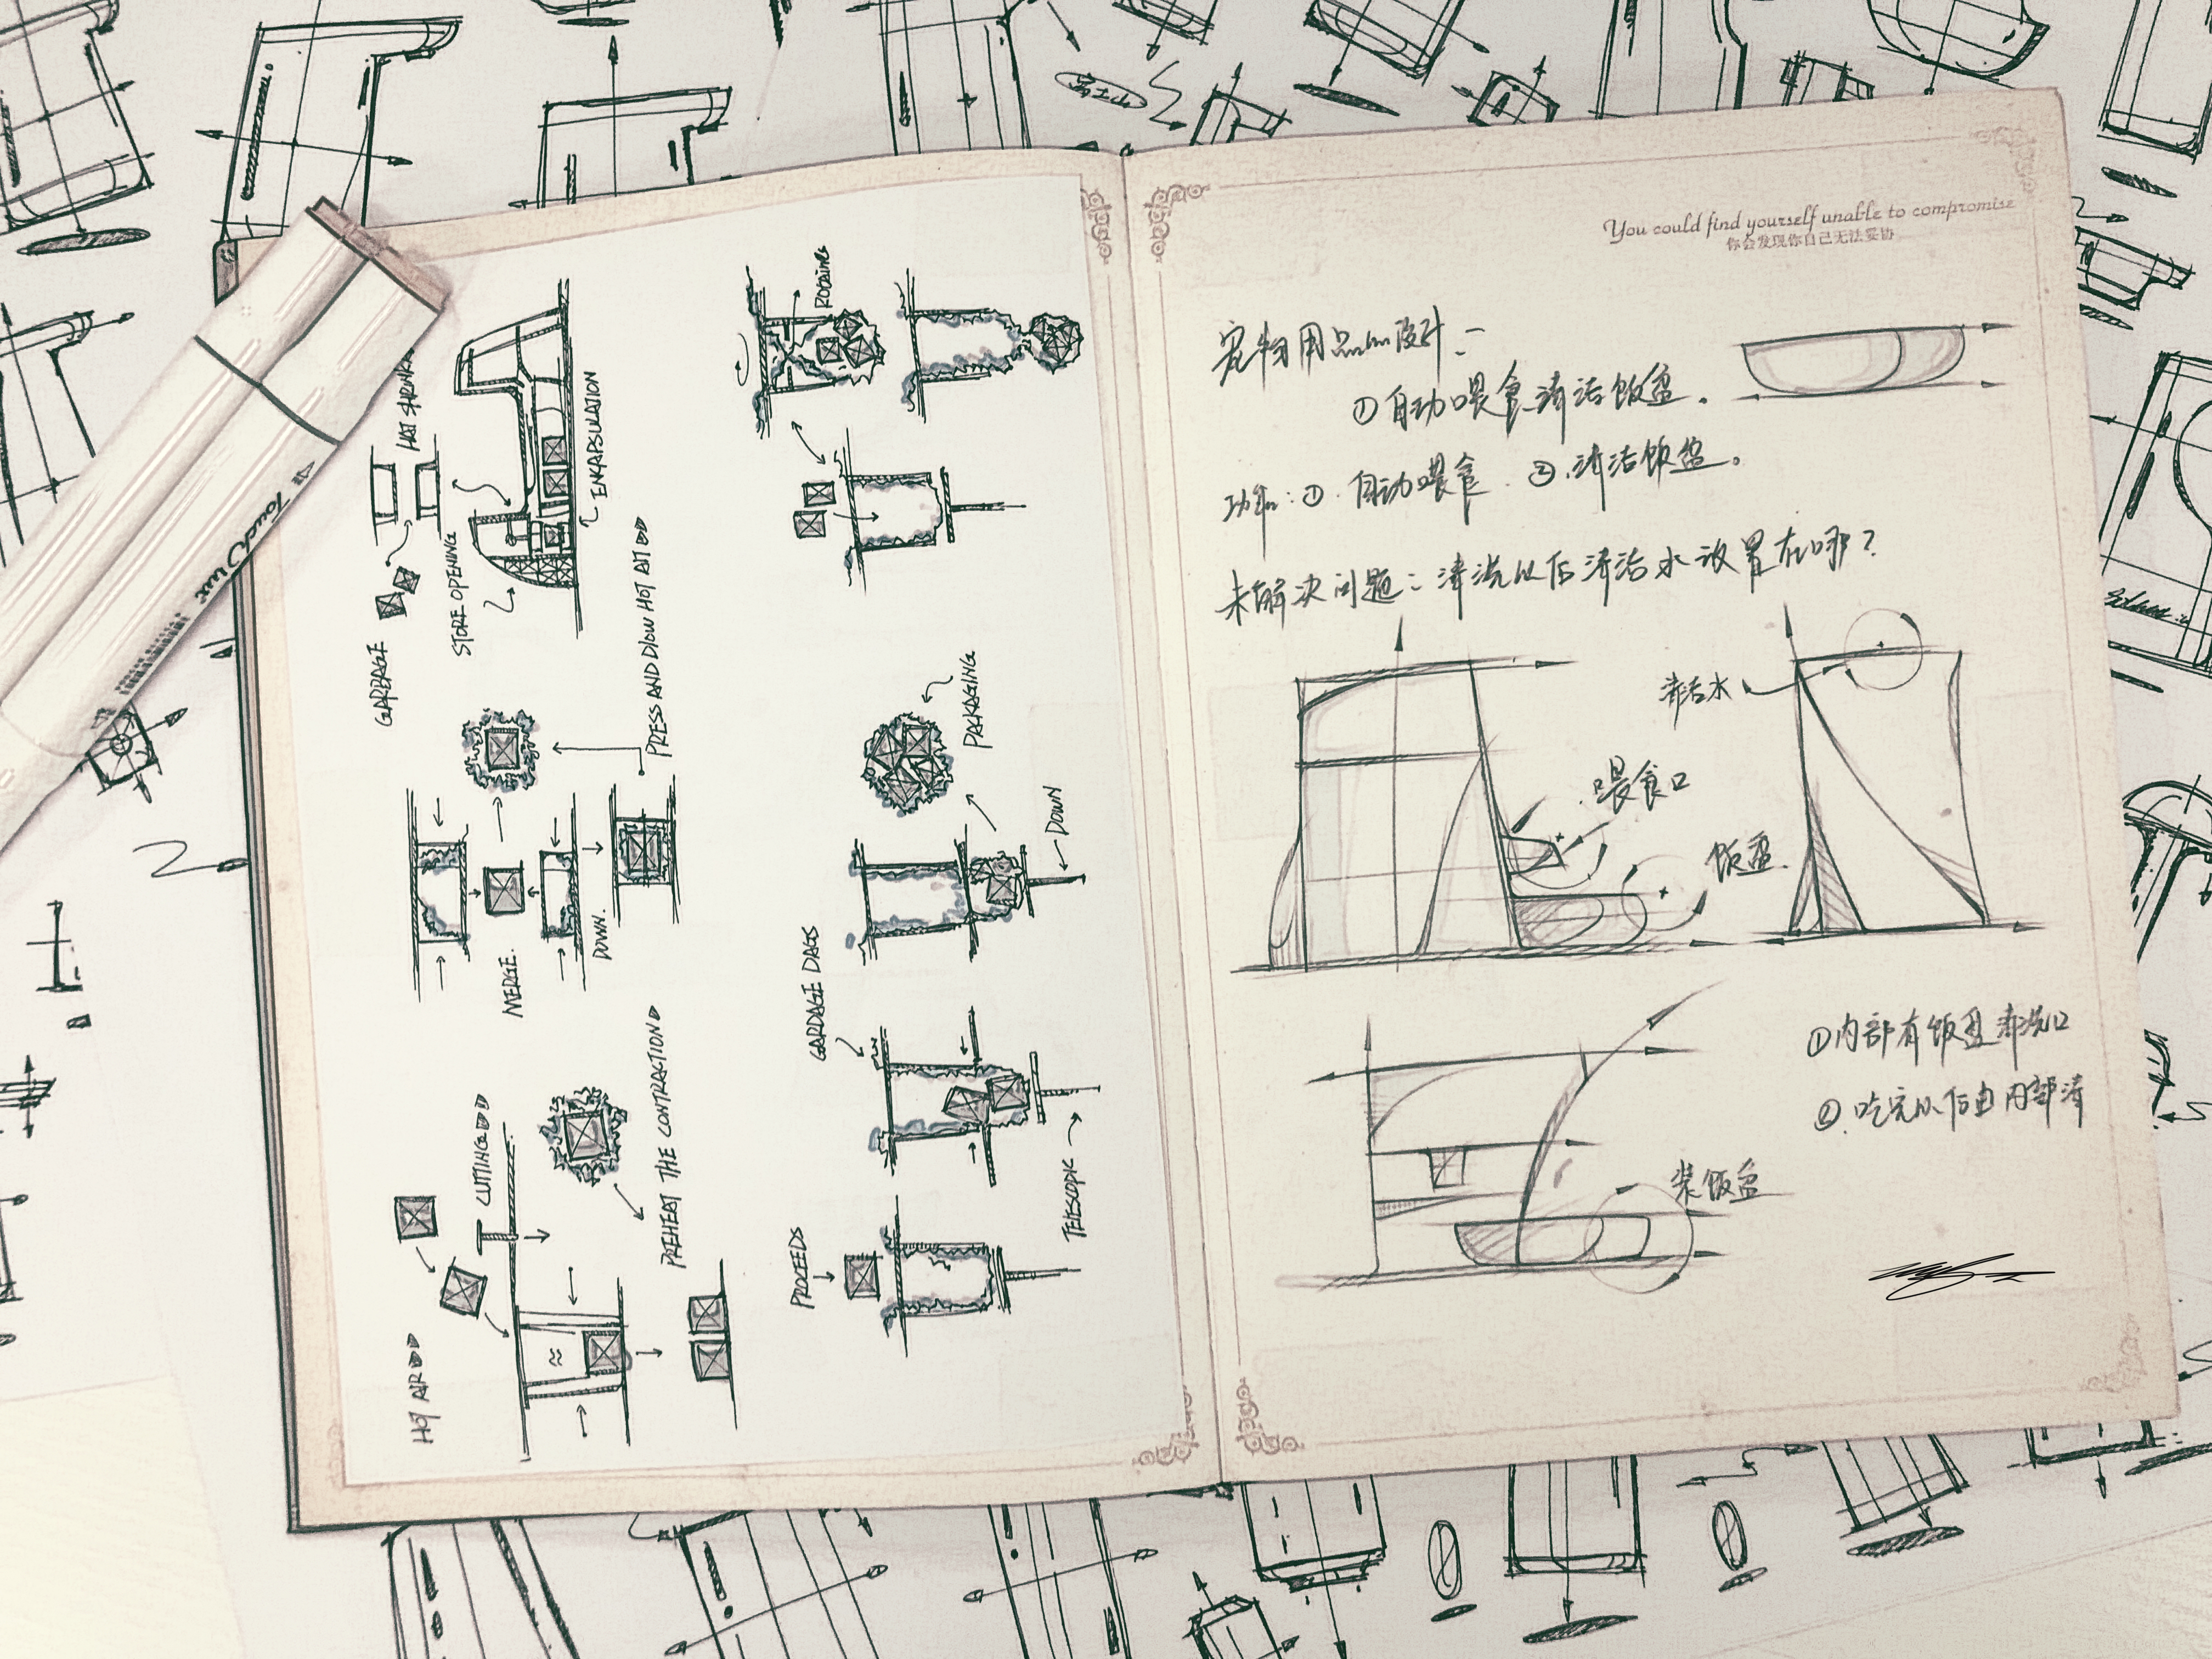 You could find yourself unable to compromise
你会发现你自己无法妥协
宠物用品的设计:
①自动喂食清洁饭盆.
功能:①.自动喂食.②.清洁饭盆。
未解决问题:清洗以后清洁水放置在哪?
清洁水
喂食口
饭盆.
①内部有饭盆清洗口
②.吃完以后由内部清
装饭盆
HOT AIR
CUTTING
PREHEAT THE CONTRACTION
MERGE.
DOWN.
PRESS AND BLOW HOT AIR
GARBAGE
STORE OPENING
ENKAPSULATION
PROCEEDS
TELESCOPIC
GARDAGE DAGS
DOWN
PACKAGING
Touch Five
富士山